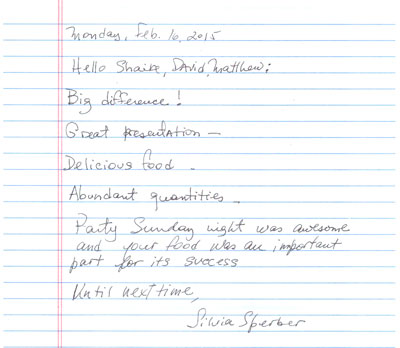 Monday, Feb. 16, 2015
Hello Shaike, David, Matthew:
Big difference!
Great presentation —
Delicious food -
Abundant quantities -
Party Sunday night was awesome
and your food was an important
part for its success
Until next time,
Silvia Sperber